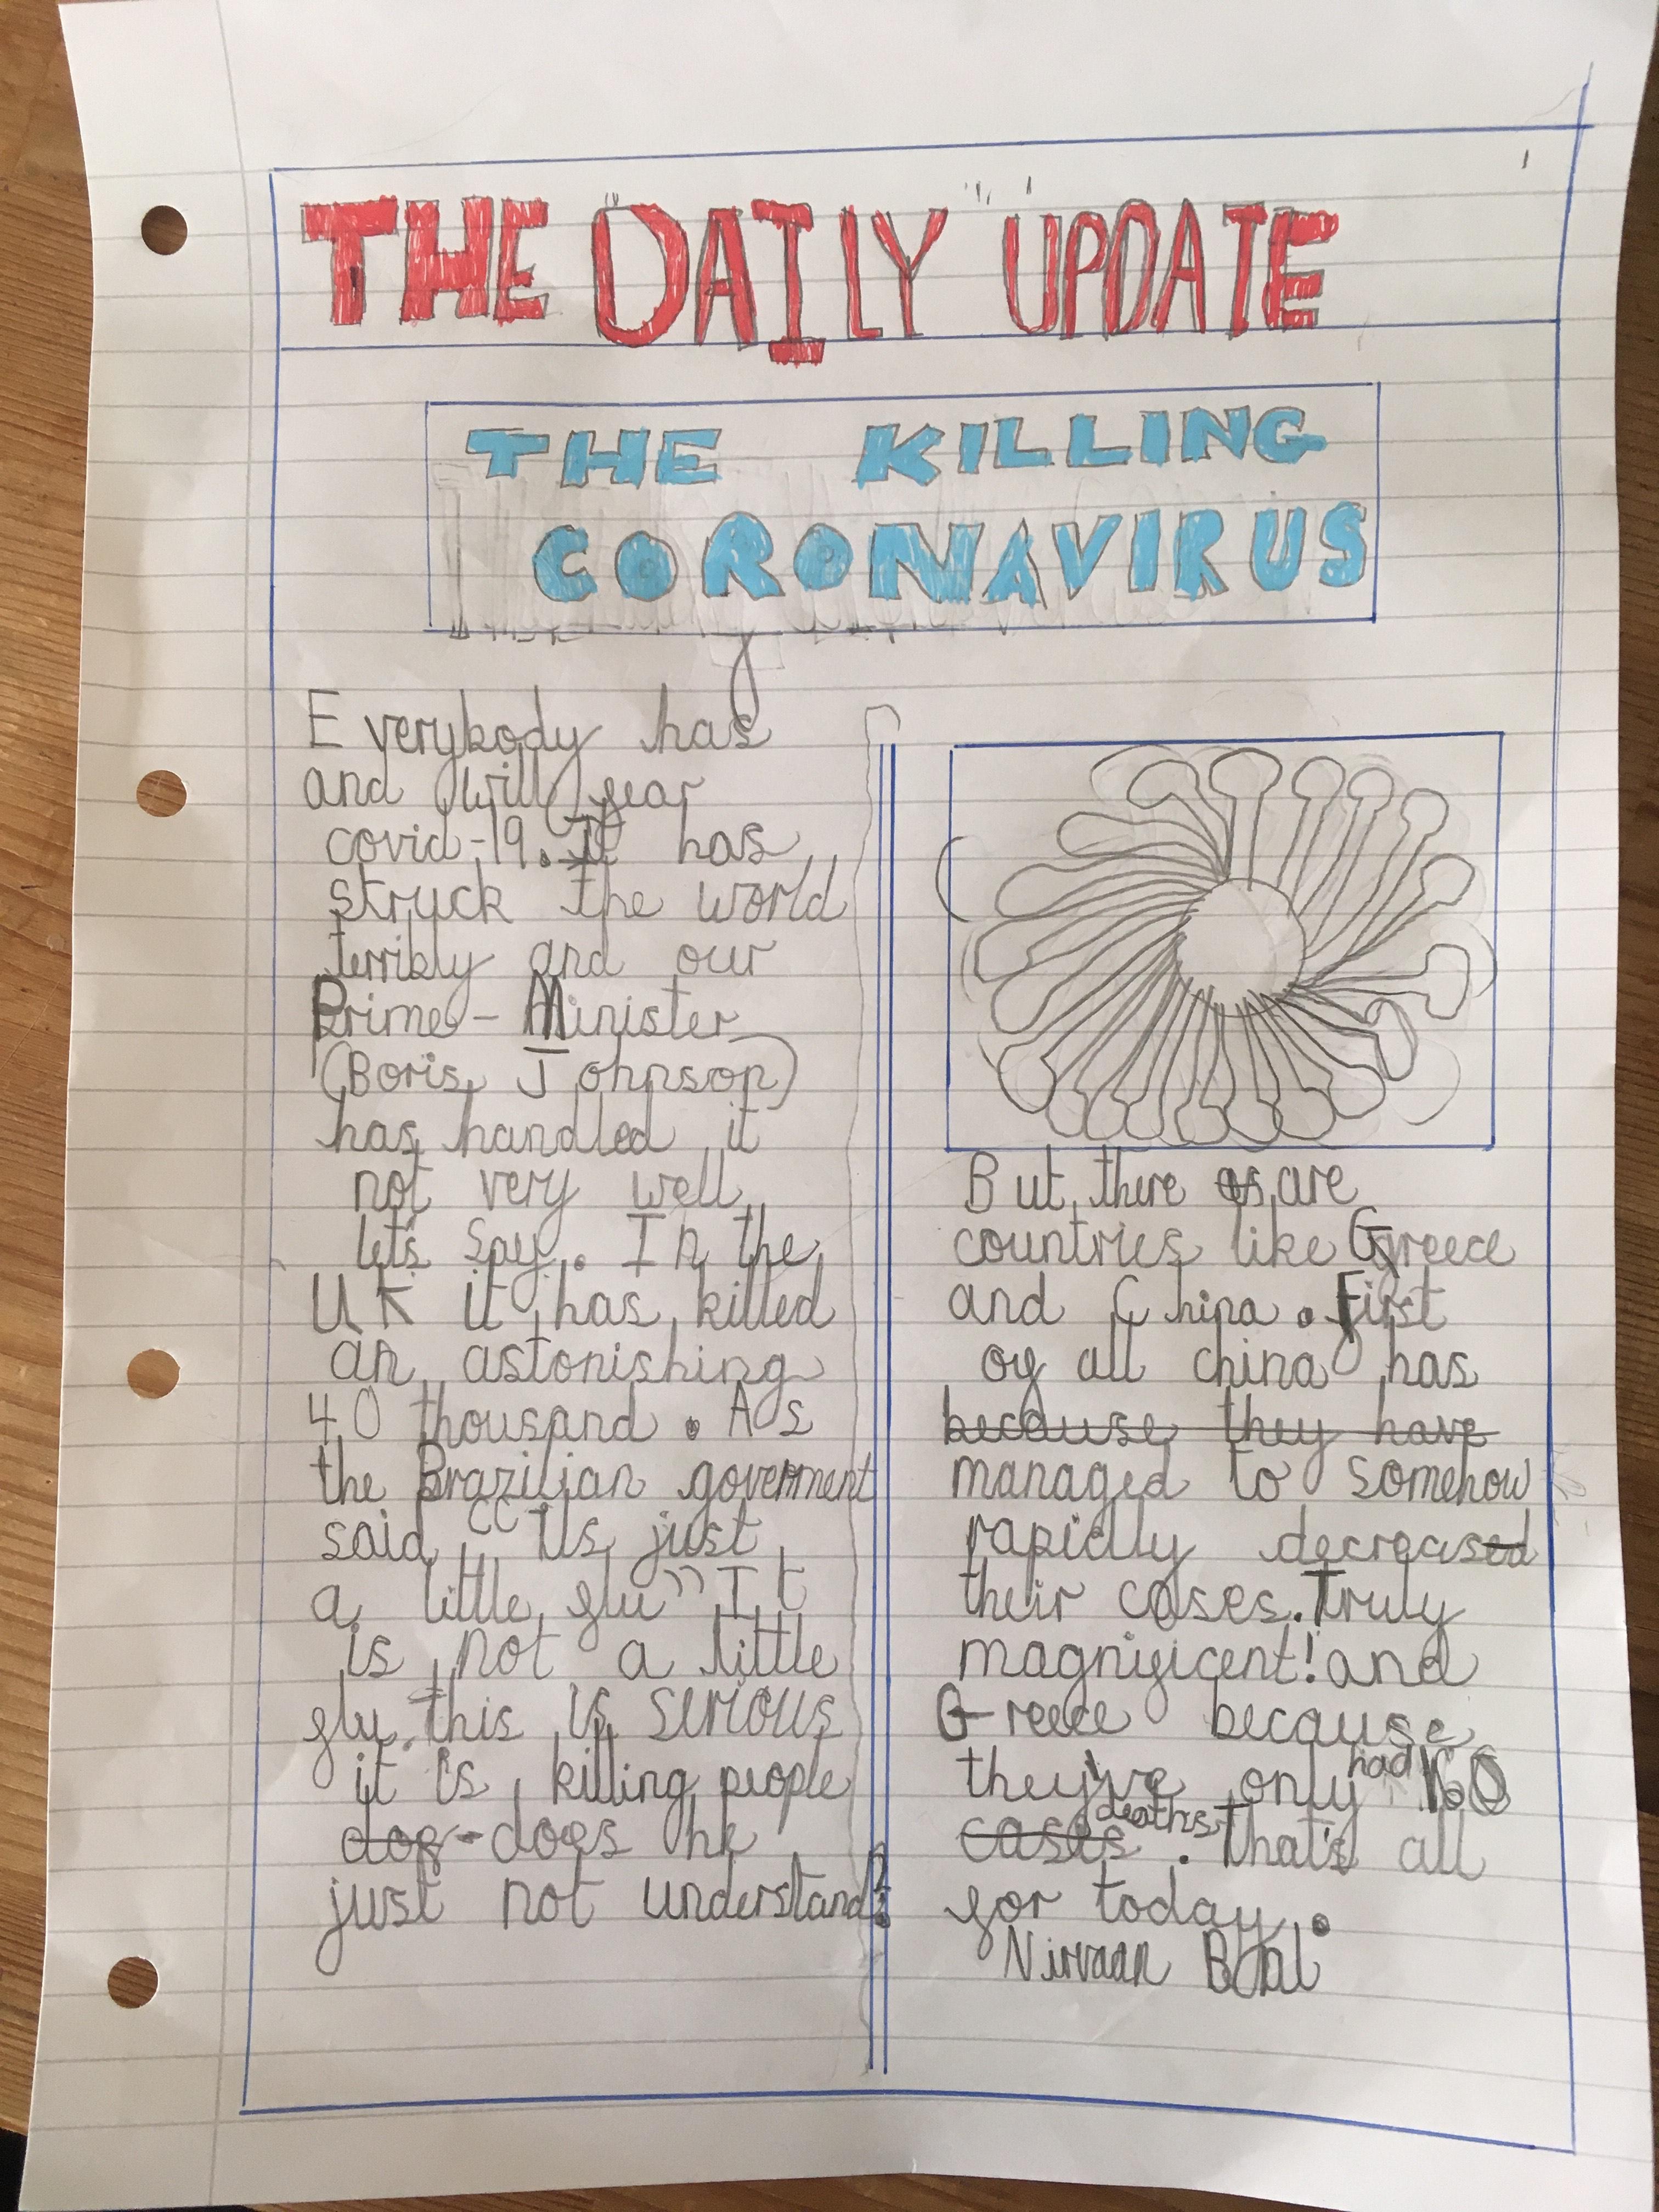 THE DAILY UPDATE
THE KILLING
CORONAVIRUS
Everybody has
and will fear
covid-19. It has
struck the world
terribly and our
Prime-Minister
(Boris Johnson)
has handled it
not very well
let's say. In the
UK it has killed
an astonishing
40 thousand. As
the Brazilian government
said "Its just
a little flu" It
is not a little
flu. this is serious
it is killing people
does he
just not understand?!
But there are
countries like Greece
and China. First
of all china has
because they have
managed to somehow
rapidly decreased
their cases. Truly
magnificent! and
Greece because
they've only had 160
cases deaths. That's all
for today.
Nirvaan